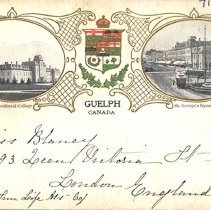 91
ricultural College
St. George's Square
GUELPH
CANADA
ss Blaney
93 Queen Victoria St
London England
Life Ass Co